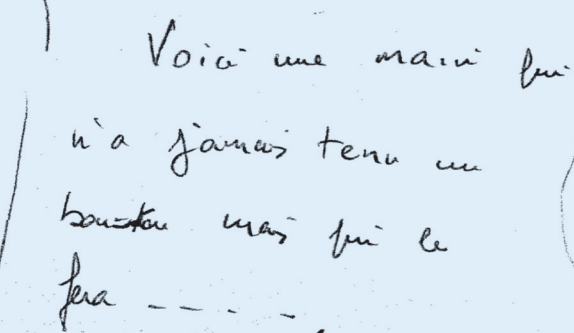 Voici une main qui
n'a jamais tenu un
mais qui le
fera -----